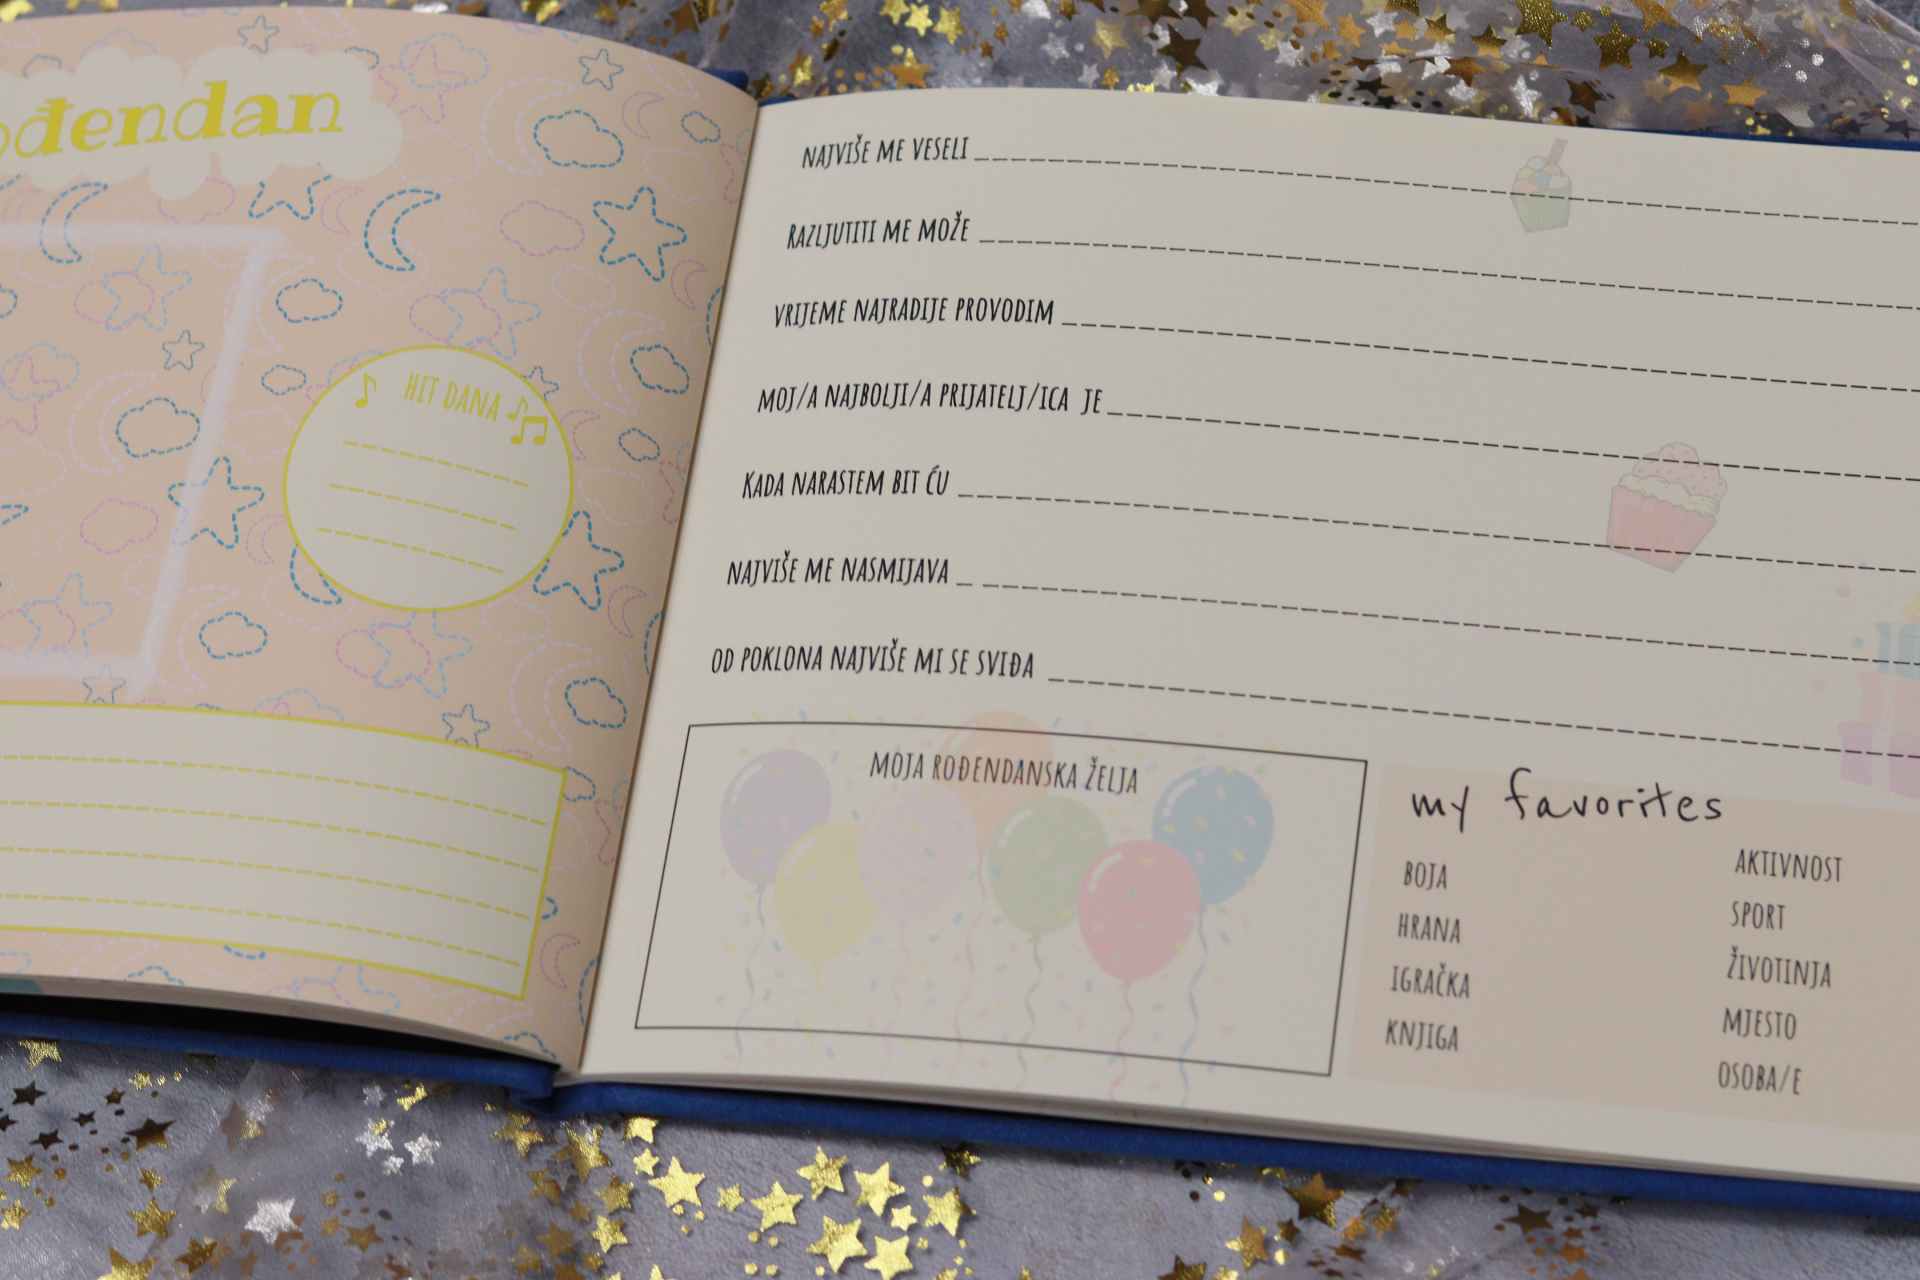 ođendan
HIT DANA
NAJVIŠE ME VESELI
RAZLJUTITI ME MOŽE
VRIJEME NAJRADIJE PROVODIM
MOJ/A NAJBOLJI/A PRIJATELJ/ICA JE
KADA NARASTEM BIT ĆU
NAJVIŠE ME NASMIJAVA
OD POKLONA NAJVIŠE MI SE SVIĐA
MOJA ROĐENDANSKA ŽELJA
my favorites
BOJA
HRANA
IGRAČKA
KNJIGA
AKTIVNOST
SPORT
ŽIVOTINJA
MJESTO
OSOBA/E